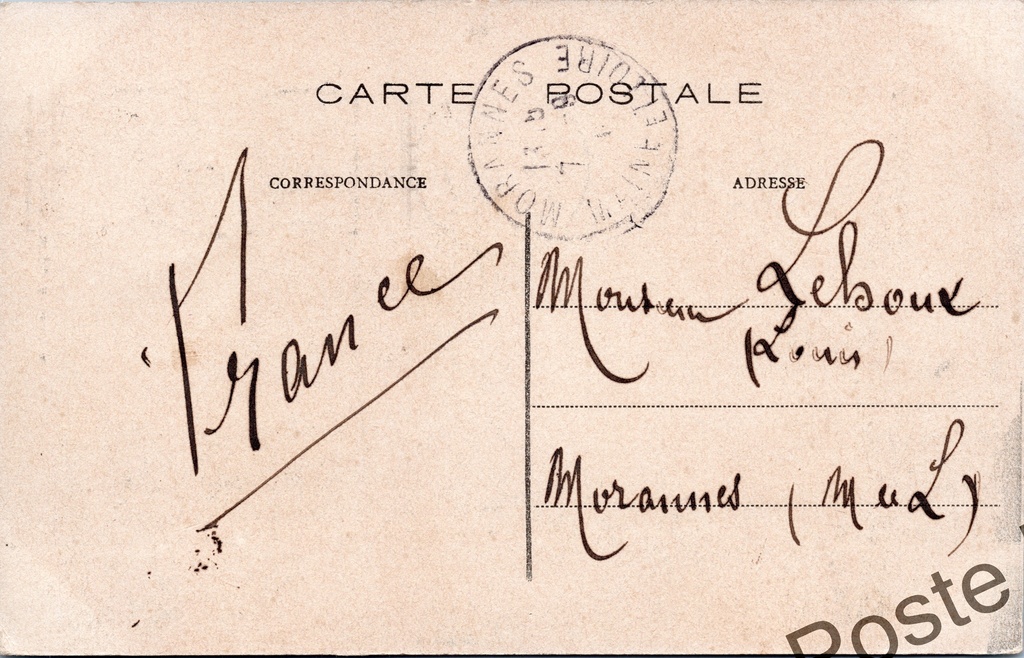 CARTE POSTALE
MORANNES MAINE ET LOIRE
CORRESPONDANCE
ADRESSE
France
Monsieur Leboux
(Louis)
Morannes (M et L)
Poste